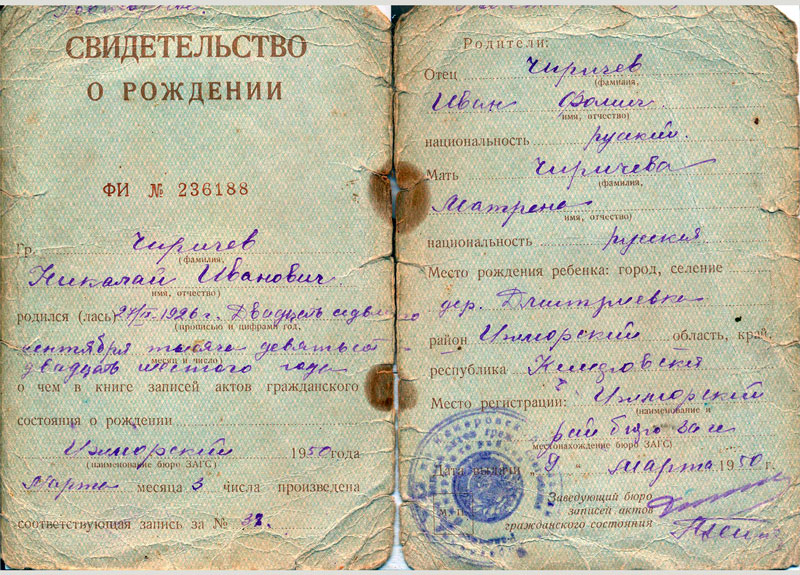 СВИДЕТЕЛЬСТВО
О РОЖДЕНИИ
ФИ № 236188
Гр. Чиричев
(фамилия,
Николай Иванович.
имя, отчество)
родился (лась) 27/IX-1926 г. Двадцать седьмого
(прописью и цифрами год,
сентября тысяча девятьсот
месяц и число)
двадцать шестого года
о чем в книге записей актов гражданского
состояния о рождении
Ижморский 1950 года
(наименование бюро ЗАГС)
Марта месяца 3 числа произведена
соответствующая запись за № 32.
Родители:
Отец Чиричев
(фамилия,
Иван
имя, отчество)
национальность русский.
Мать Чиричева
(фамилия,
Матрена
имя, отчество)
национальность русская
Место рождения ребенка: город, селение
дер. Дмитриевка
район Ижморский область, край,
республика Кемеровская
Место регистрации: Ижморский
(наименование и
рай бюро Загс
местонахождение бюро ЗАГС)
Дата выдачи 9 " марта 1950 г.
Заведующий бюро
записей актов
гражданского состояния